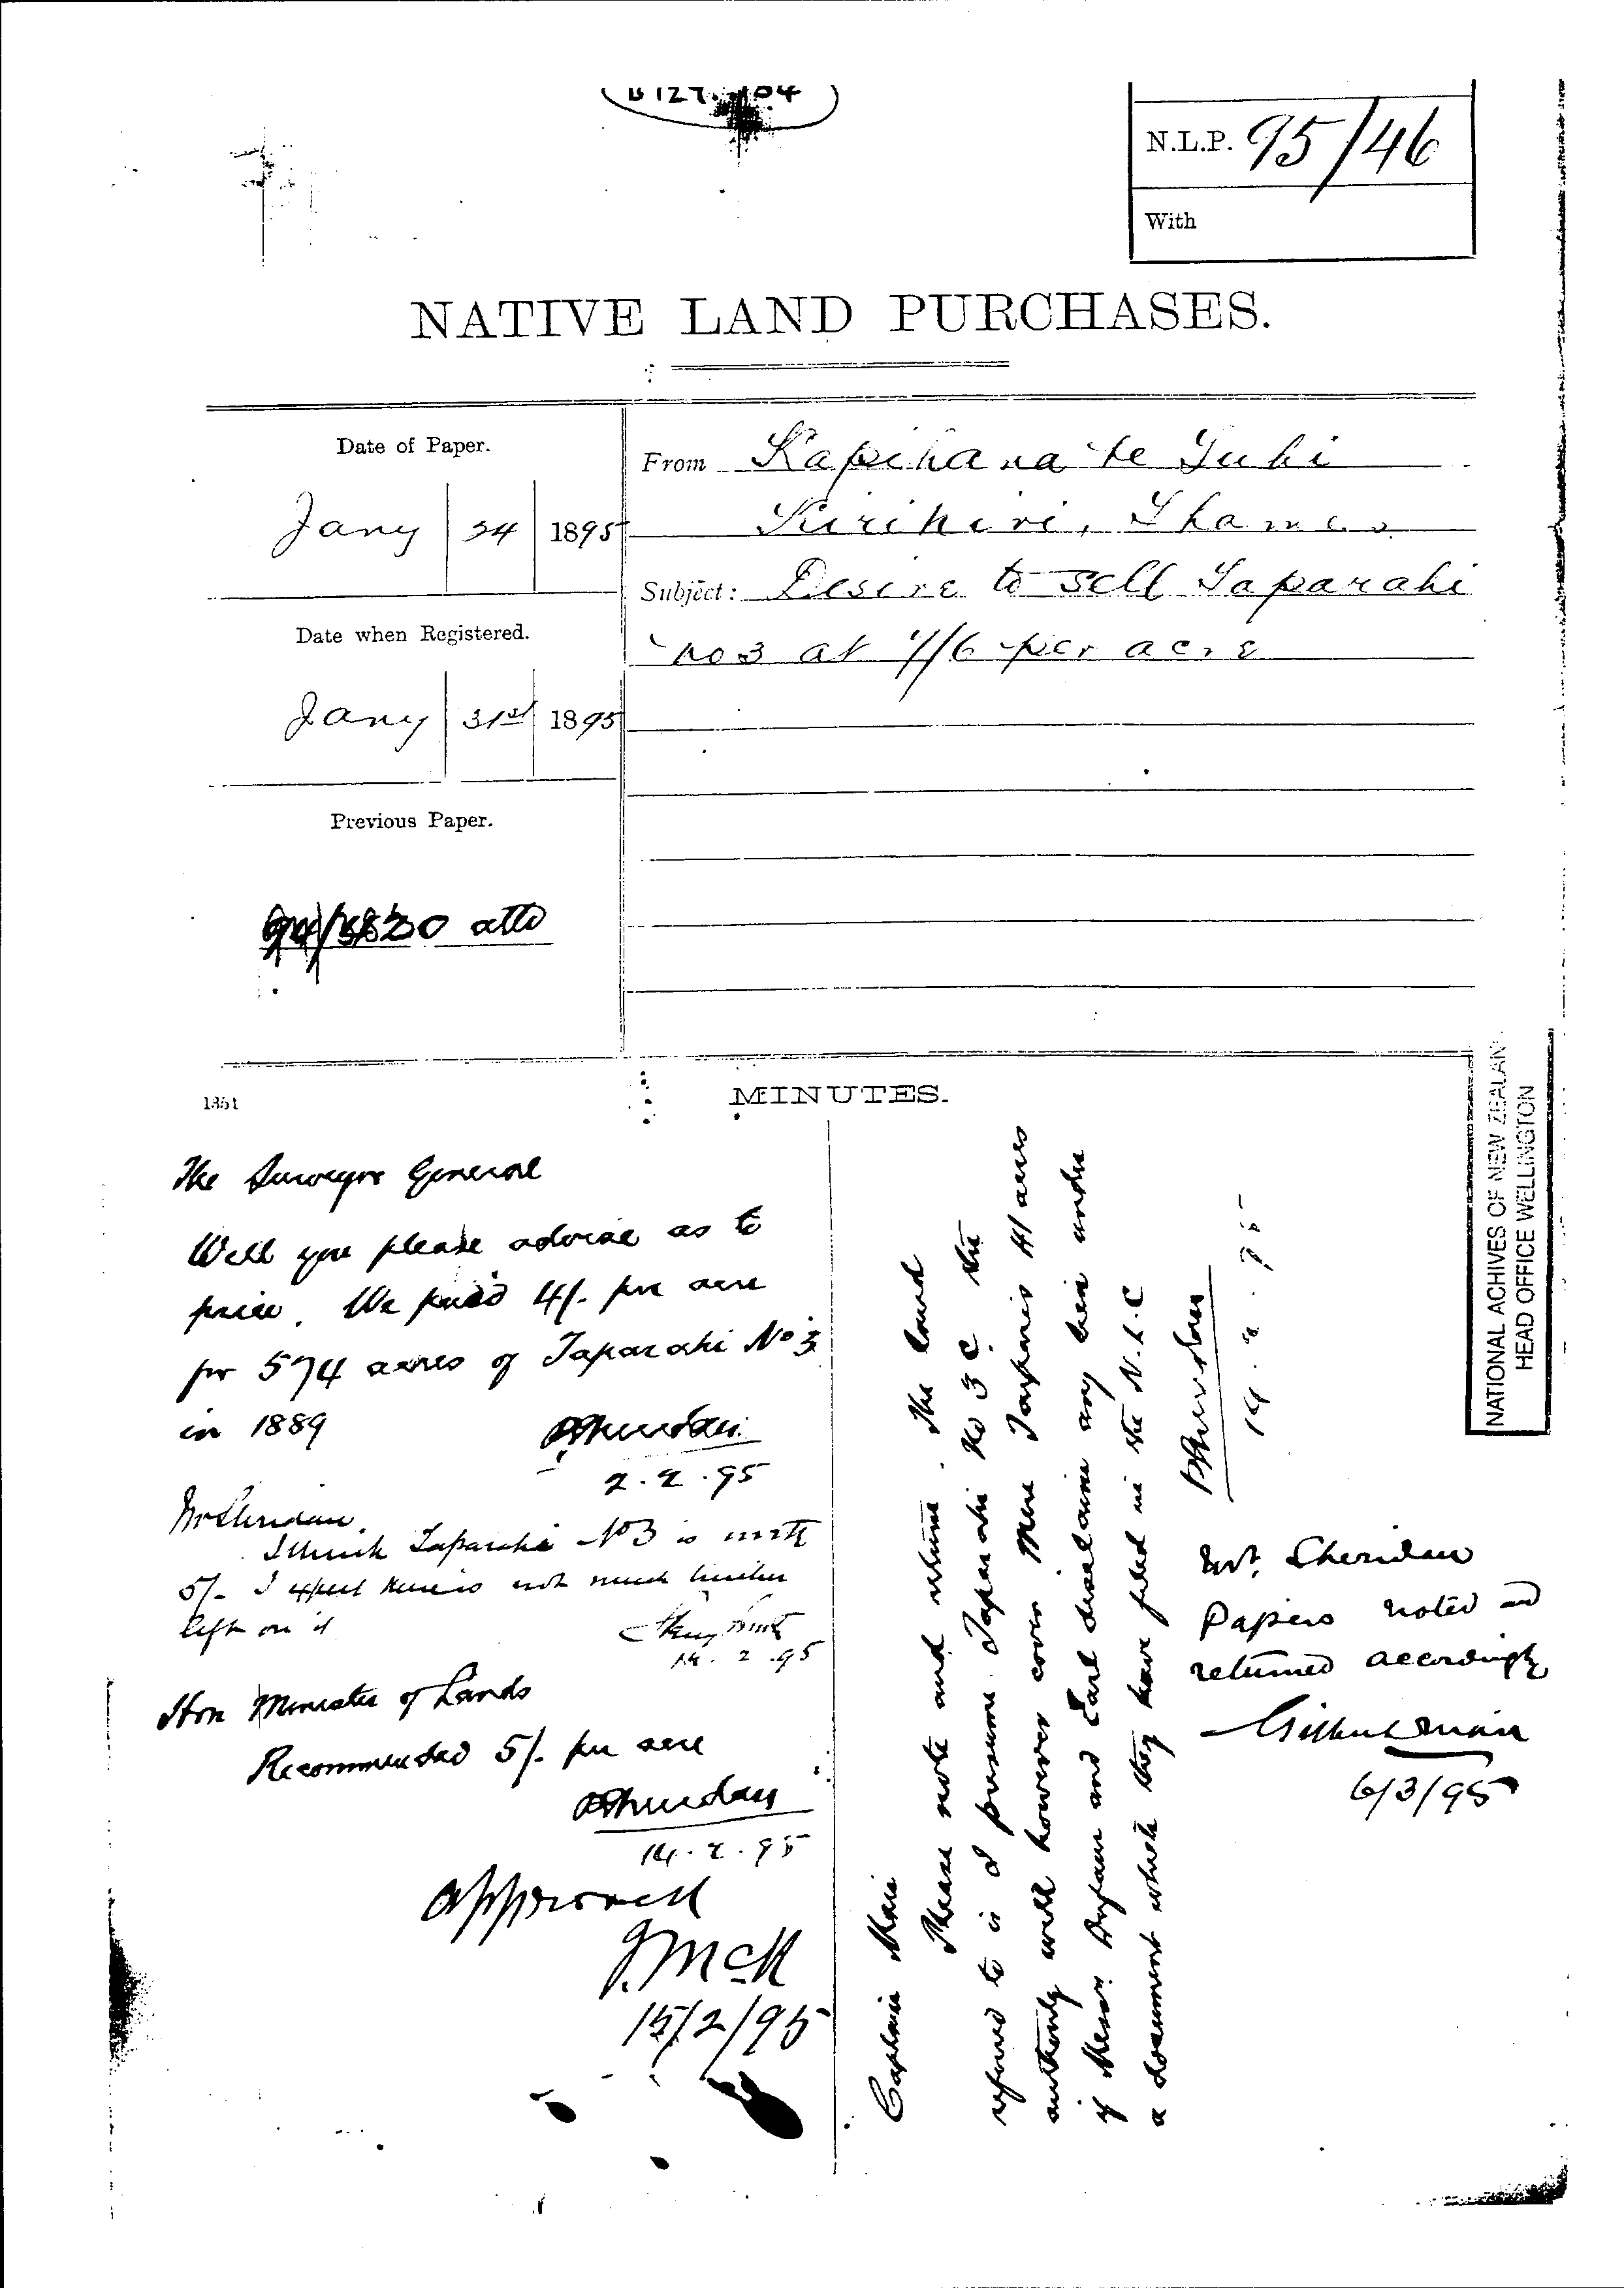 B 127. 04
N.L.P. 95/46
With
NATIVE LAND PURCHASES.
Date of Paper.
Jany 24 1895
Date when Registered.
Jany 31st 1895
Previous Paper.
atto
From Kapihana te Tuhi
Kirikiri, Thames
Subject: Desire to sell Taparahi
No 3 at 7/6 per acre
1351
MINUTES.
The Surveyor General
Will you please advise as to
price. We paid 4/- per acre
for 574 acres of Taparahi No 3
in 1889
PSheridan
2.2.95
Mr Sheridan.
I think Taparahi No 3 is worth
5/- I expect there is not much timber
left on it
14.2.95
Hon Minister of Lands
Recommended 5/- per acre
PSheridan
14.2.95
Approved
J.McK
15/2/95
Captain Mair
Please note and return. The land
referred to is I presume Taparahi No 3C. The
authority will however cover Mere Taipari's 41 acres
if Messrs Dufaur and Earl disclaim any lien under
a document which they have filed in the N.L.C
PSheridan
19.2.95
Mr. Sheridan
Papers noted and
returned accordingly
Gilbert Mair
6/3/95
NATIONAL ACHIVES OF NEW ZEALAN
HEAD OFFICE WELLINGTON